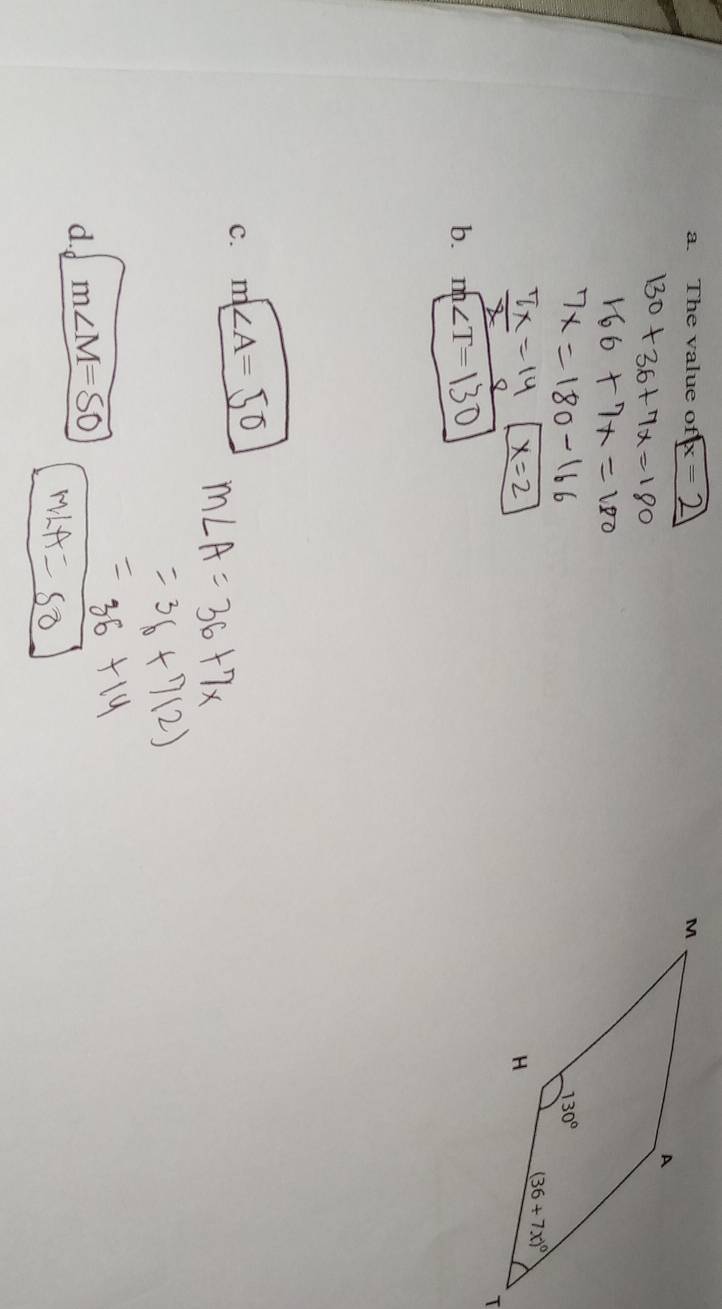 a. The value of x = 2
130 + 36 + 7x = 180
166 + 7x = 180
7x = 180 - 166
7x = 14
x = 2
b. m∠T = 130
c. m∠A = 50
m∠A = 36 + 7x
= 36 + 7(2)
= 36 + 14
m∠A = 50
d. m∠M = 50
M
A
H
T
130°
(36 + 7x)°